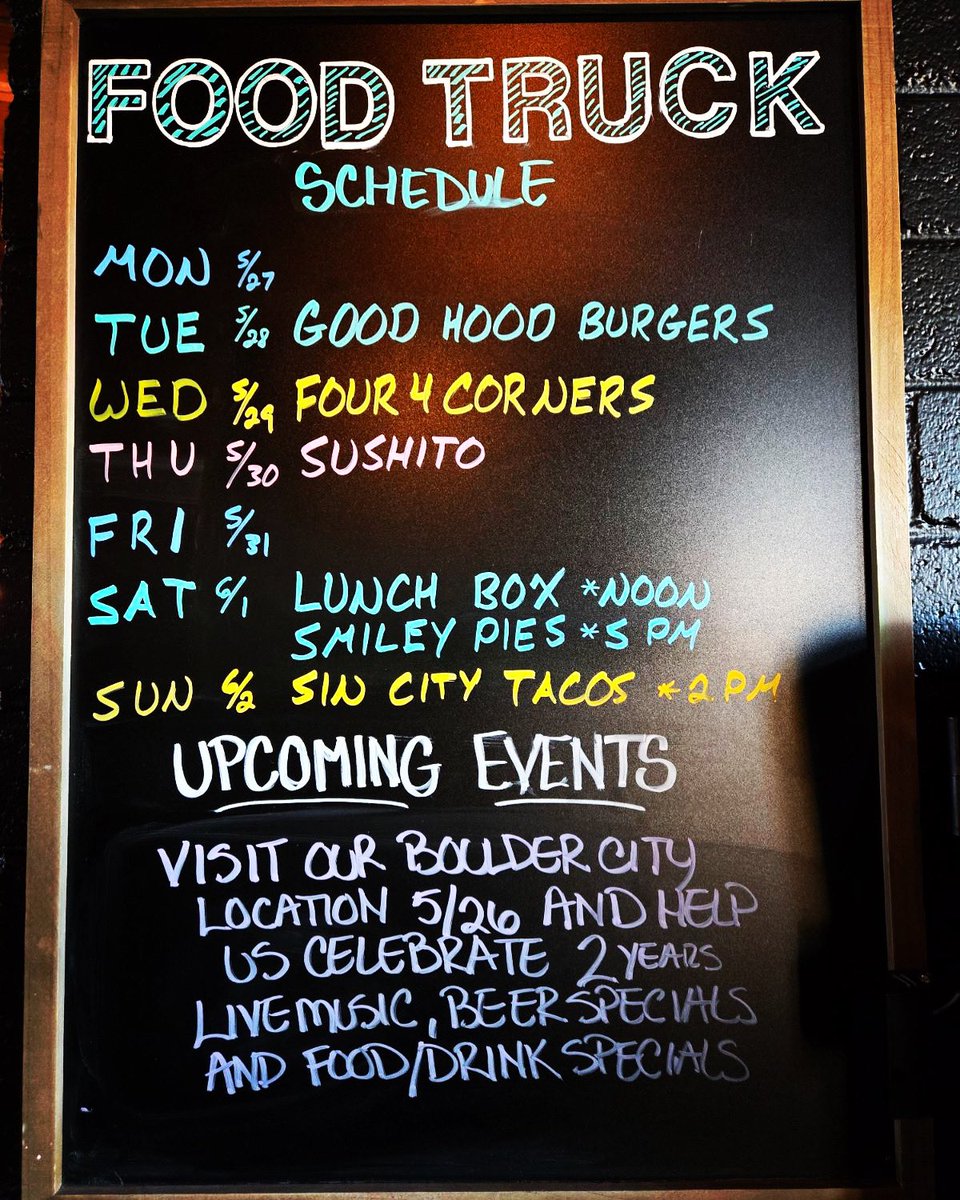 FOOD TRUCK
SCHEDULE
MON 5/27
TUE 5/28 GOOD HOOD BURGERS
WED 5/29 FOUR 4 CORNERS
THU 5/30 SUSHITO
FRI 5/31
SAT 6/1 LUNCH BOX *NOON
SMILEY PIES *5 PM
SUN 6/2 SIN CITY TACOS *2PM
UPCOMING EVENTS
VISIT OUR BOULDER CITY
LOCATION 5/26 AND HELP
US CELEBRATE 2 YEARS
LIVE MUSIC, BEER SPECIALS
AND FOOD/DRINK SPECIALS